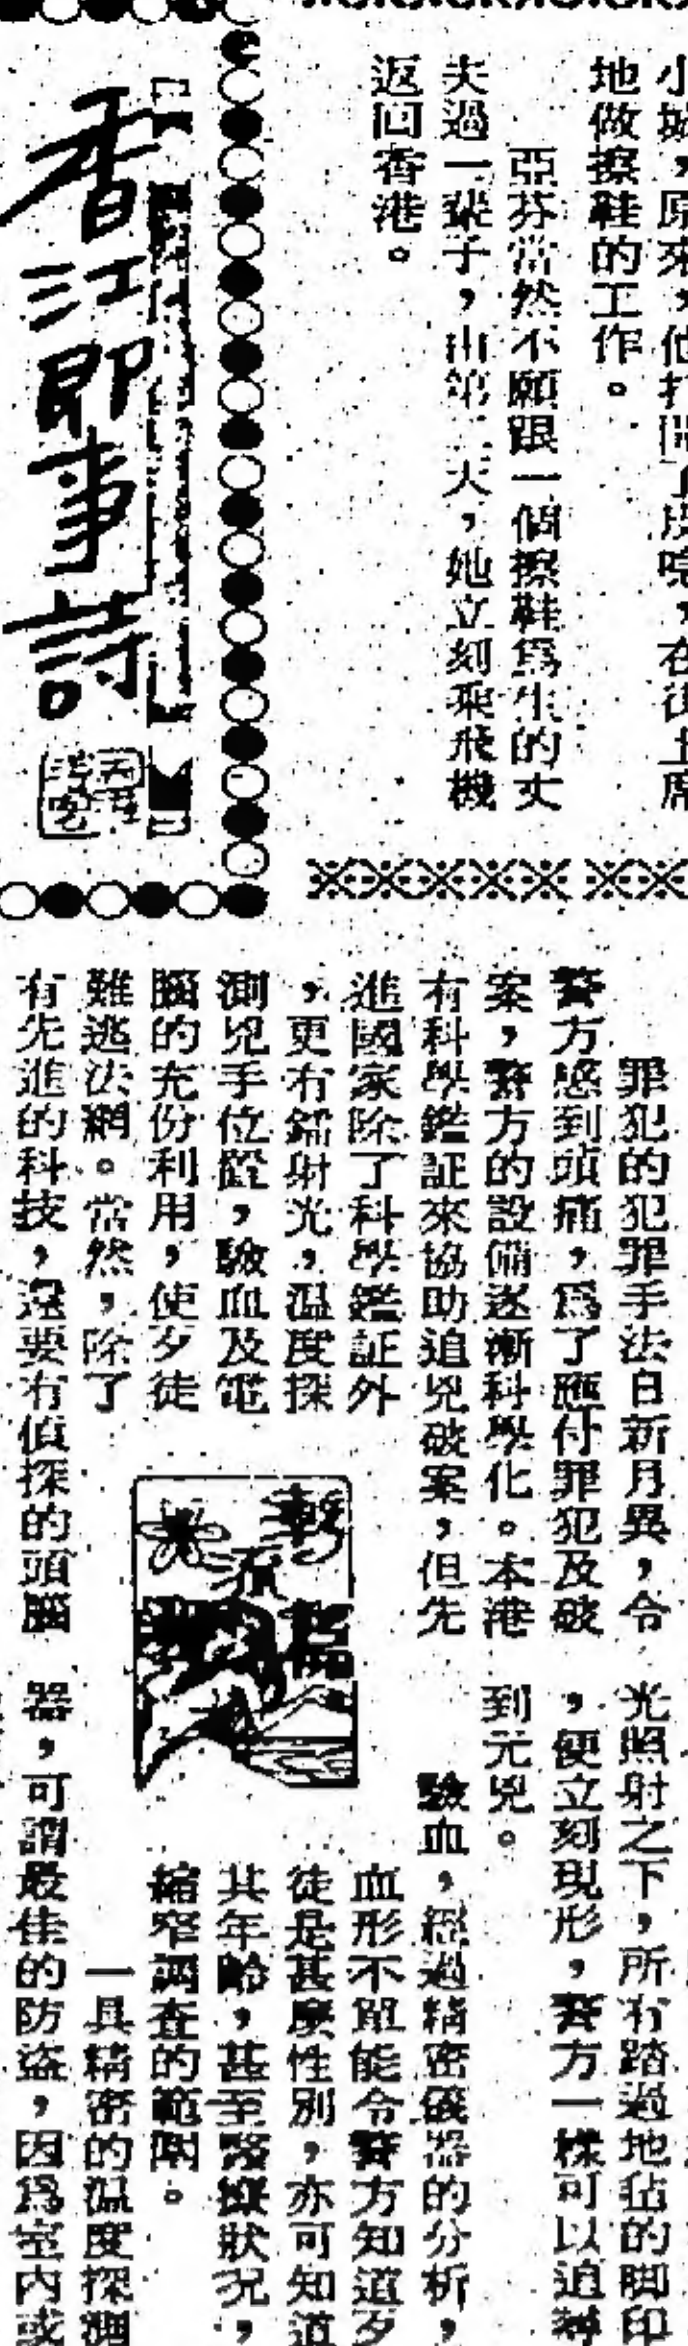 小城，原來，他打開了皮喼，在街上席
地做擦鞋的工作。
亞芬當然不願跟一個擦鞋爲生的丈
夫過一輩子，由第二天，她立刻乘飛機
返回香港。
香江即事詩
罪犯的犯罪手法日新月異，令
警方感到頭痛，爲了應付罪犯及破
案，警方的設備逐漸科學化。本港
有科學鑑証來協助追兇破案，但先
進國家除了科學鑑証外
，更有鐳射光，溫度探
測兇手位置，驗血及電
腦的充份利用，使歹徒
難逃法網。當然，除了
有先進的科技，還要有偵探的頭腦
光照射之下，所有踏過地毡的脚印
，便立刻現形，警方一樣可以追尋
到元兇。
驗血，經過精密儀器的分析，
血形不單能令警方知道歹
徒是甚麼性別，亦可知道
其年齡，甚至醫療狀況，
縮窄調查的範圍。
一具精密的溫度探測
器，可謂最佳的防盜，因爲室内或